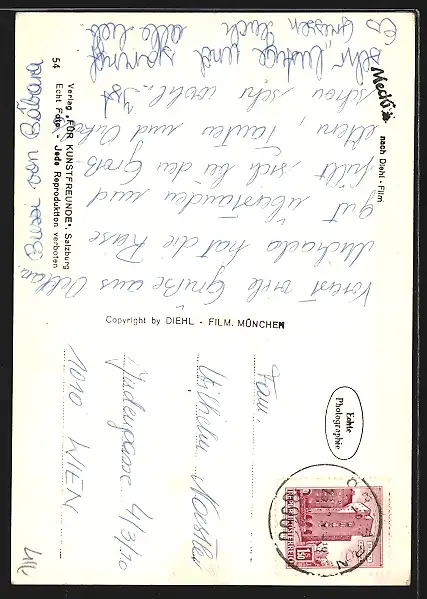 Mecki
nach Diehl-Film
Vorerst viele Grüße aus Ostern.
Michaela hat die Reise
gut überstanden und
fühlt sich bei den Groß-
eltern, Tanten und Onkel
schon sehr wohl. Ist
sehr lustig und spannend
Es grüssen Euch alle lieb.
Bussi von Bábara
54
Verlag "FÜR KUNSTFREUNDE", Salzburg
Echt Foto - Jede Reproduktion verboten
Copyright by DIEHL - FILM, MÜNCHEN
Echte
Photographie
Fam.
Wilhelm
Judengasse 4/3/10
1010 WIEN
1.50
REPUBLIK ÖSTERREICH